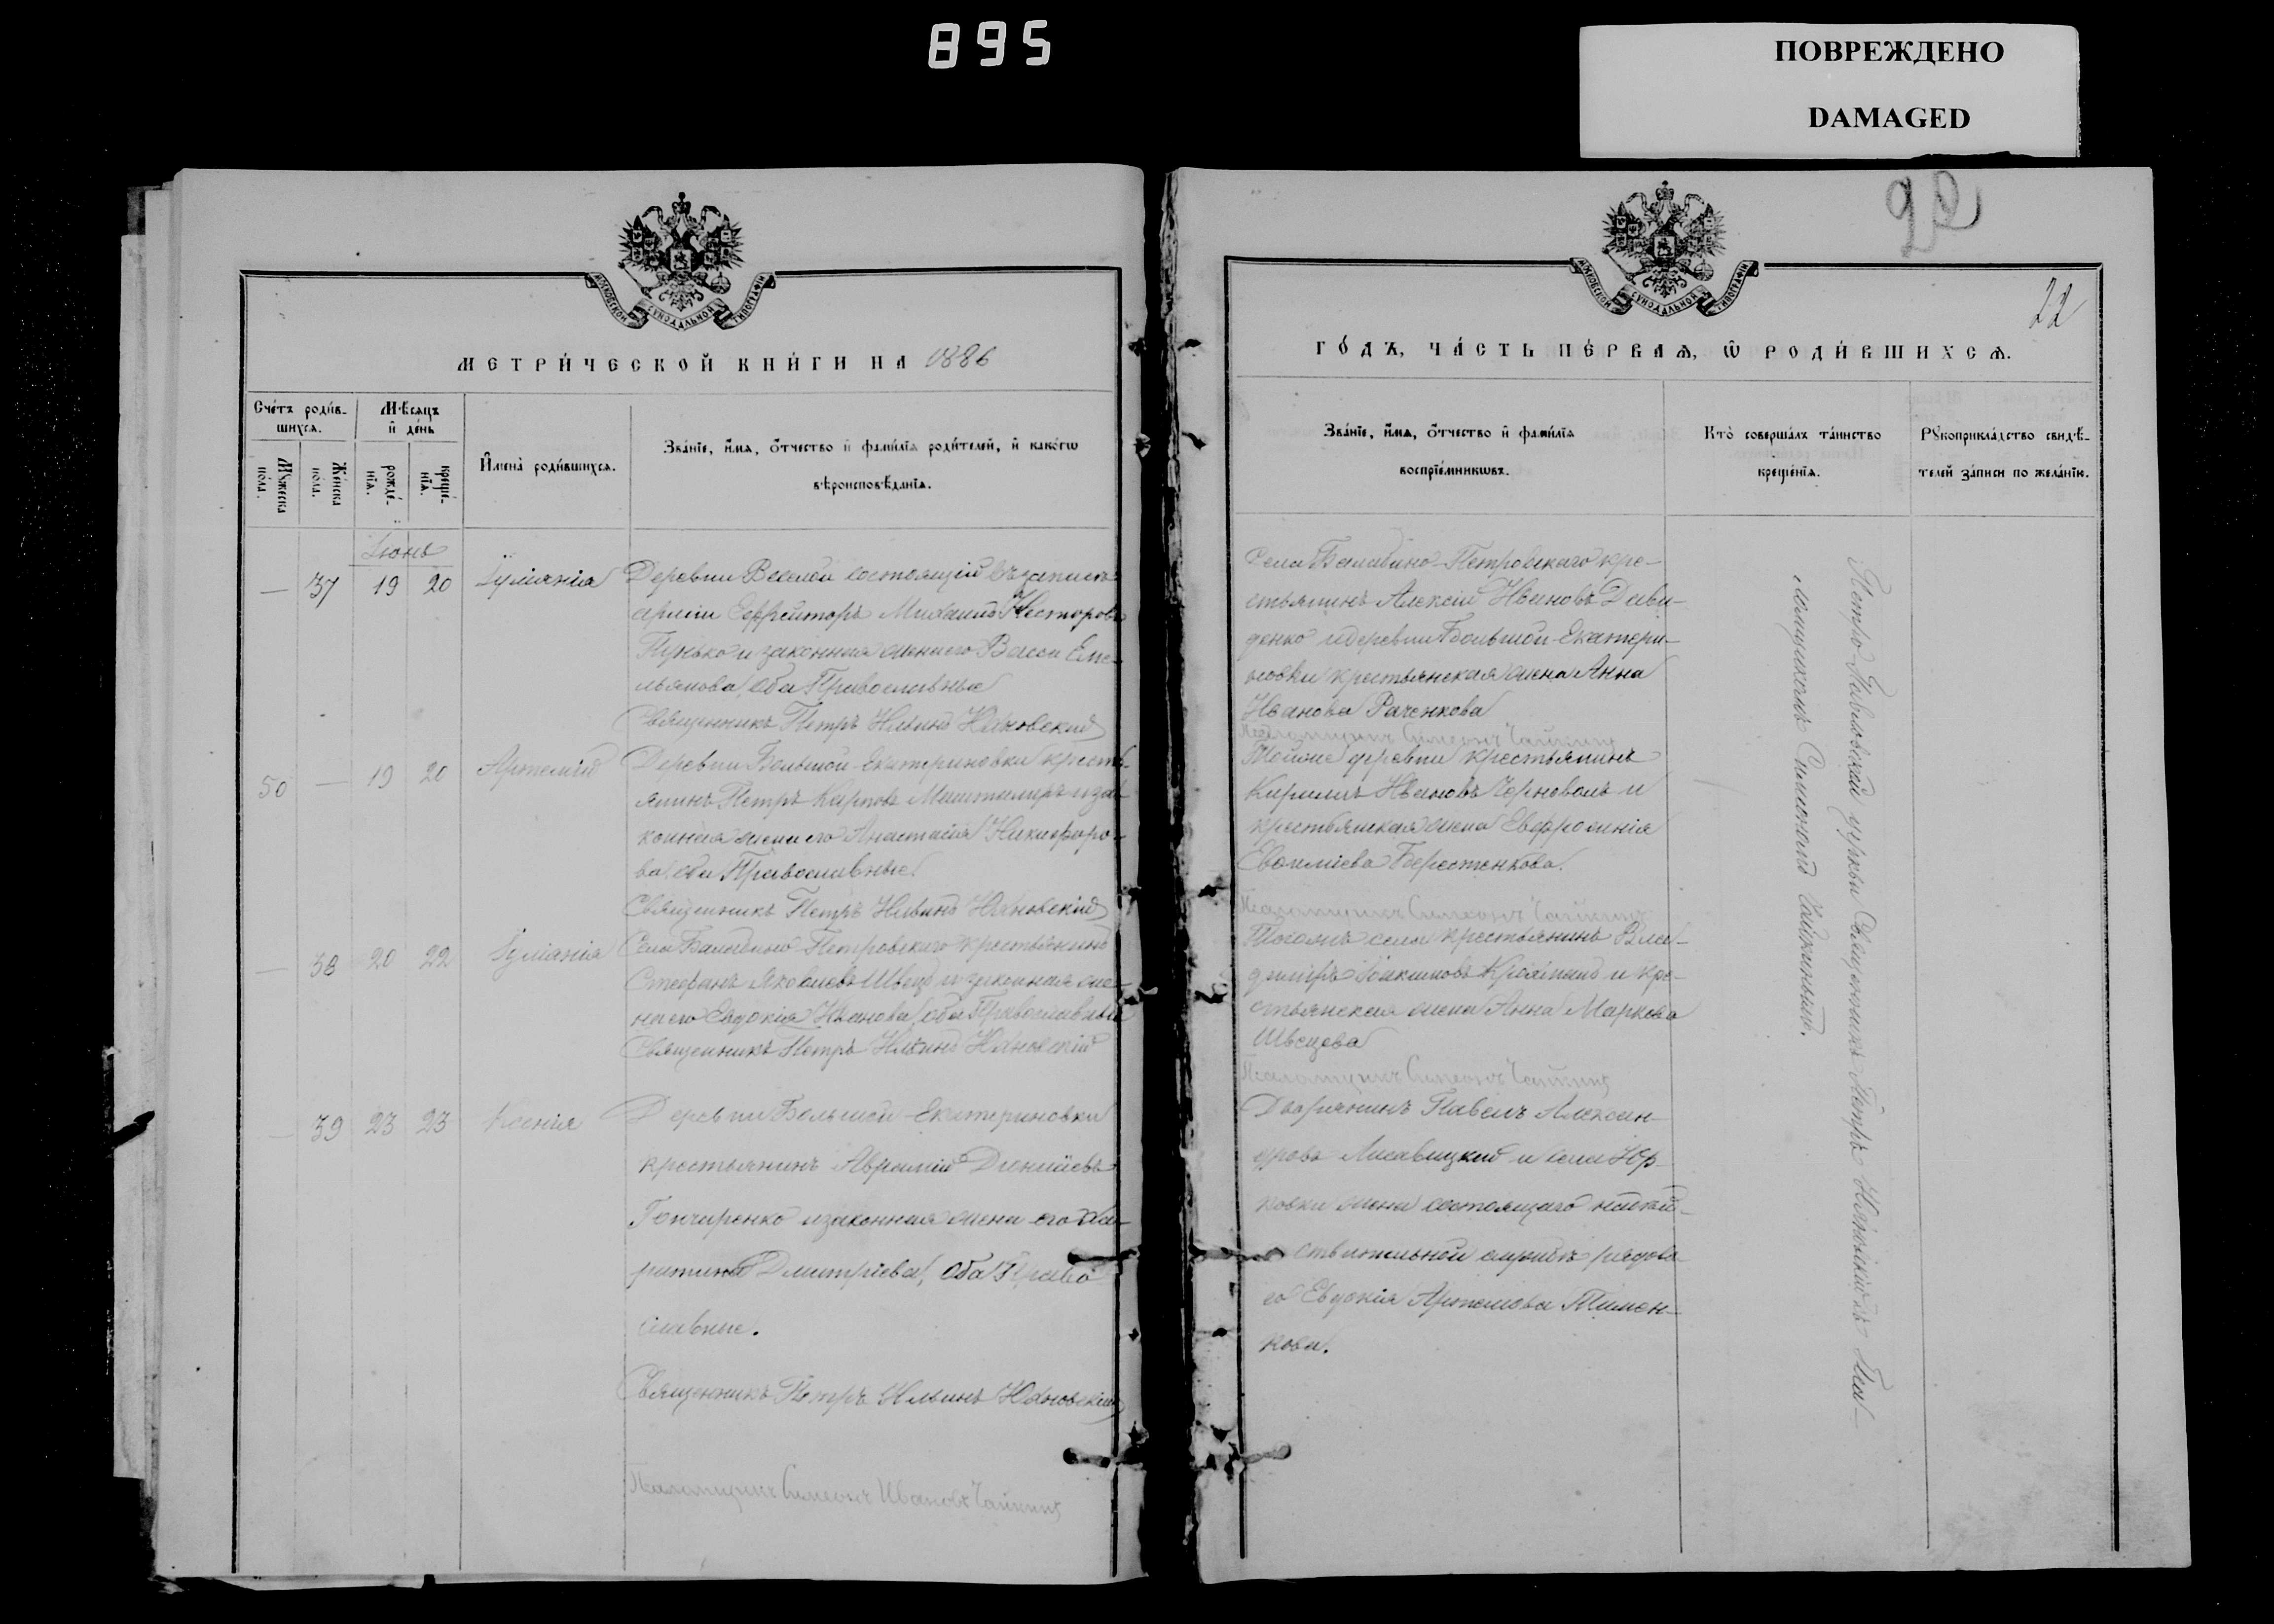 895
ПОВРЕЖДЕНО
DAMAGED
МОСКОВСКОЙ СѴНОДАЛЬНОЙ ТИПОГРАФІИ
МЕТРИ́ЧЕСКОЙ КНИ́ГИ НА 1886
Сче́тъ роди́в-
шихся.
Мѣсяцъ
и҆ де́нь
Мꙋжеска
по́ла.
Же́нска
по́ла.
рожде́-
нїѧ.
креще́-
нїѧ.
И҆мена̀ роди́вшихсѧ.
Зва́нїе, и҆́мѧ, ѻ҆́тчество и҆ фами́лїѧ роди́телей, и҆ како́гѡ
вѣроисповѣ́данїѧ.
Іюнь
— 37 19 20 Іуліанія
Деревни Веселой состоящій въ запасѣ
арміи Ефрейторъ Михаилъ Несторовъ
Пунько и законная жена его Васса Еме-
льянова, оба Православные
Священникъ Петръ Ильинъ Юановскій
50 — 19 20 Артемій
Деревни Большой-Екатериновки кресть-
янинъ Петръ Карповъ и за-
конная жена его Анастасія Никифоро-
ва, оба Православные.
Священникъ Петръ Ильинъ Юановскій
— 38 20 22 Іуліанія
Села Балабино-Петровскаго крестьянинъ
Стефанъ Яковлевъ Швецъ и законная же-
на его Евдокія Иванова, оба Православные
Священникъ Петръ Ильинъ Юановскій
— 39 23 23 Ксенія
Деревни Большой-Екатериновки
крестьянинъ Діонисіевъ
Гончаренко и законная жена его Ха-
ритина Дмитріева, оба Право
славные.
Священникъ Петръ Ильинъ Юановскій
Псаломщикъ Симеонъ Ивановъ Чайкинъ
22
22
ГО́ДЪ, ЧА́СТЬ ПЕ́РВАѦ, Ѽ РОДИ́ВШИХСѦ.
Зва́нїе, и҆́мѧ, ѻ҆́тчество и҆ фами́лїѧ
воспрїе́мникѡвъ.
Кто̀ соверша́лъ та́инство
креще́нїѧ.
Рꙋкоприкла́дство свидѣ́-
телей за́писи по жела́нїю.
Села Балабино-Петровскаго кре-
стьянинъ Алексій Ивановъ Диви-
денко и деревни Большой-Екатери-
новки крестьянская жена Анна
Иванова Раченкова
Псаломщикъ Симеонъ Чайкинъ
Тойже деревни крестьянинъ
Кириллъ Ивановъ Черноволъ и
крестьянская жена Евфросинія
Евфиміева Берестенкова.
Псаломщикъ Симеонъ Чайкинъ
Тогожъ села крестьянинъ Вла-
диміръ и кре-
стьянская жена Анна Маркова
Швецова
Псаломщикъ Симеонъ Чайкинъ
Дворянинъ Павелъ Алексан-
дровъ Лисавицкій и села Юр-
ковки жена состоящаго на дѣй-
ствительной службѣ рядова-
го Евдокія Артемова Тимен-
кова.
Петро-Павловской церкви Священникъ Петръ Юановскій съ Пса-
ломщикомъ Симеономъ Чайкинымъ.